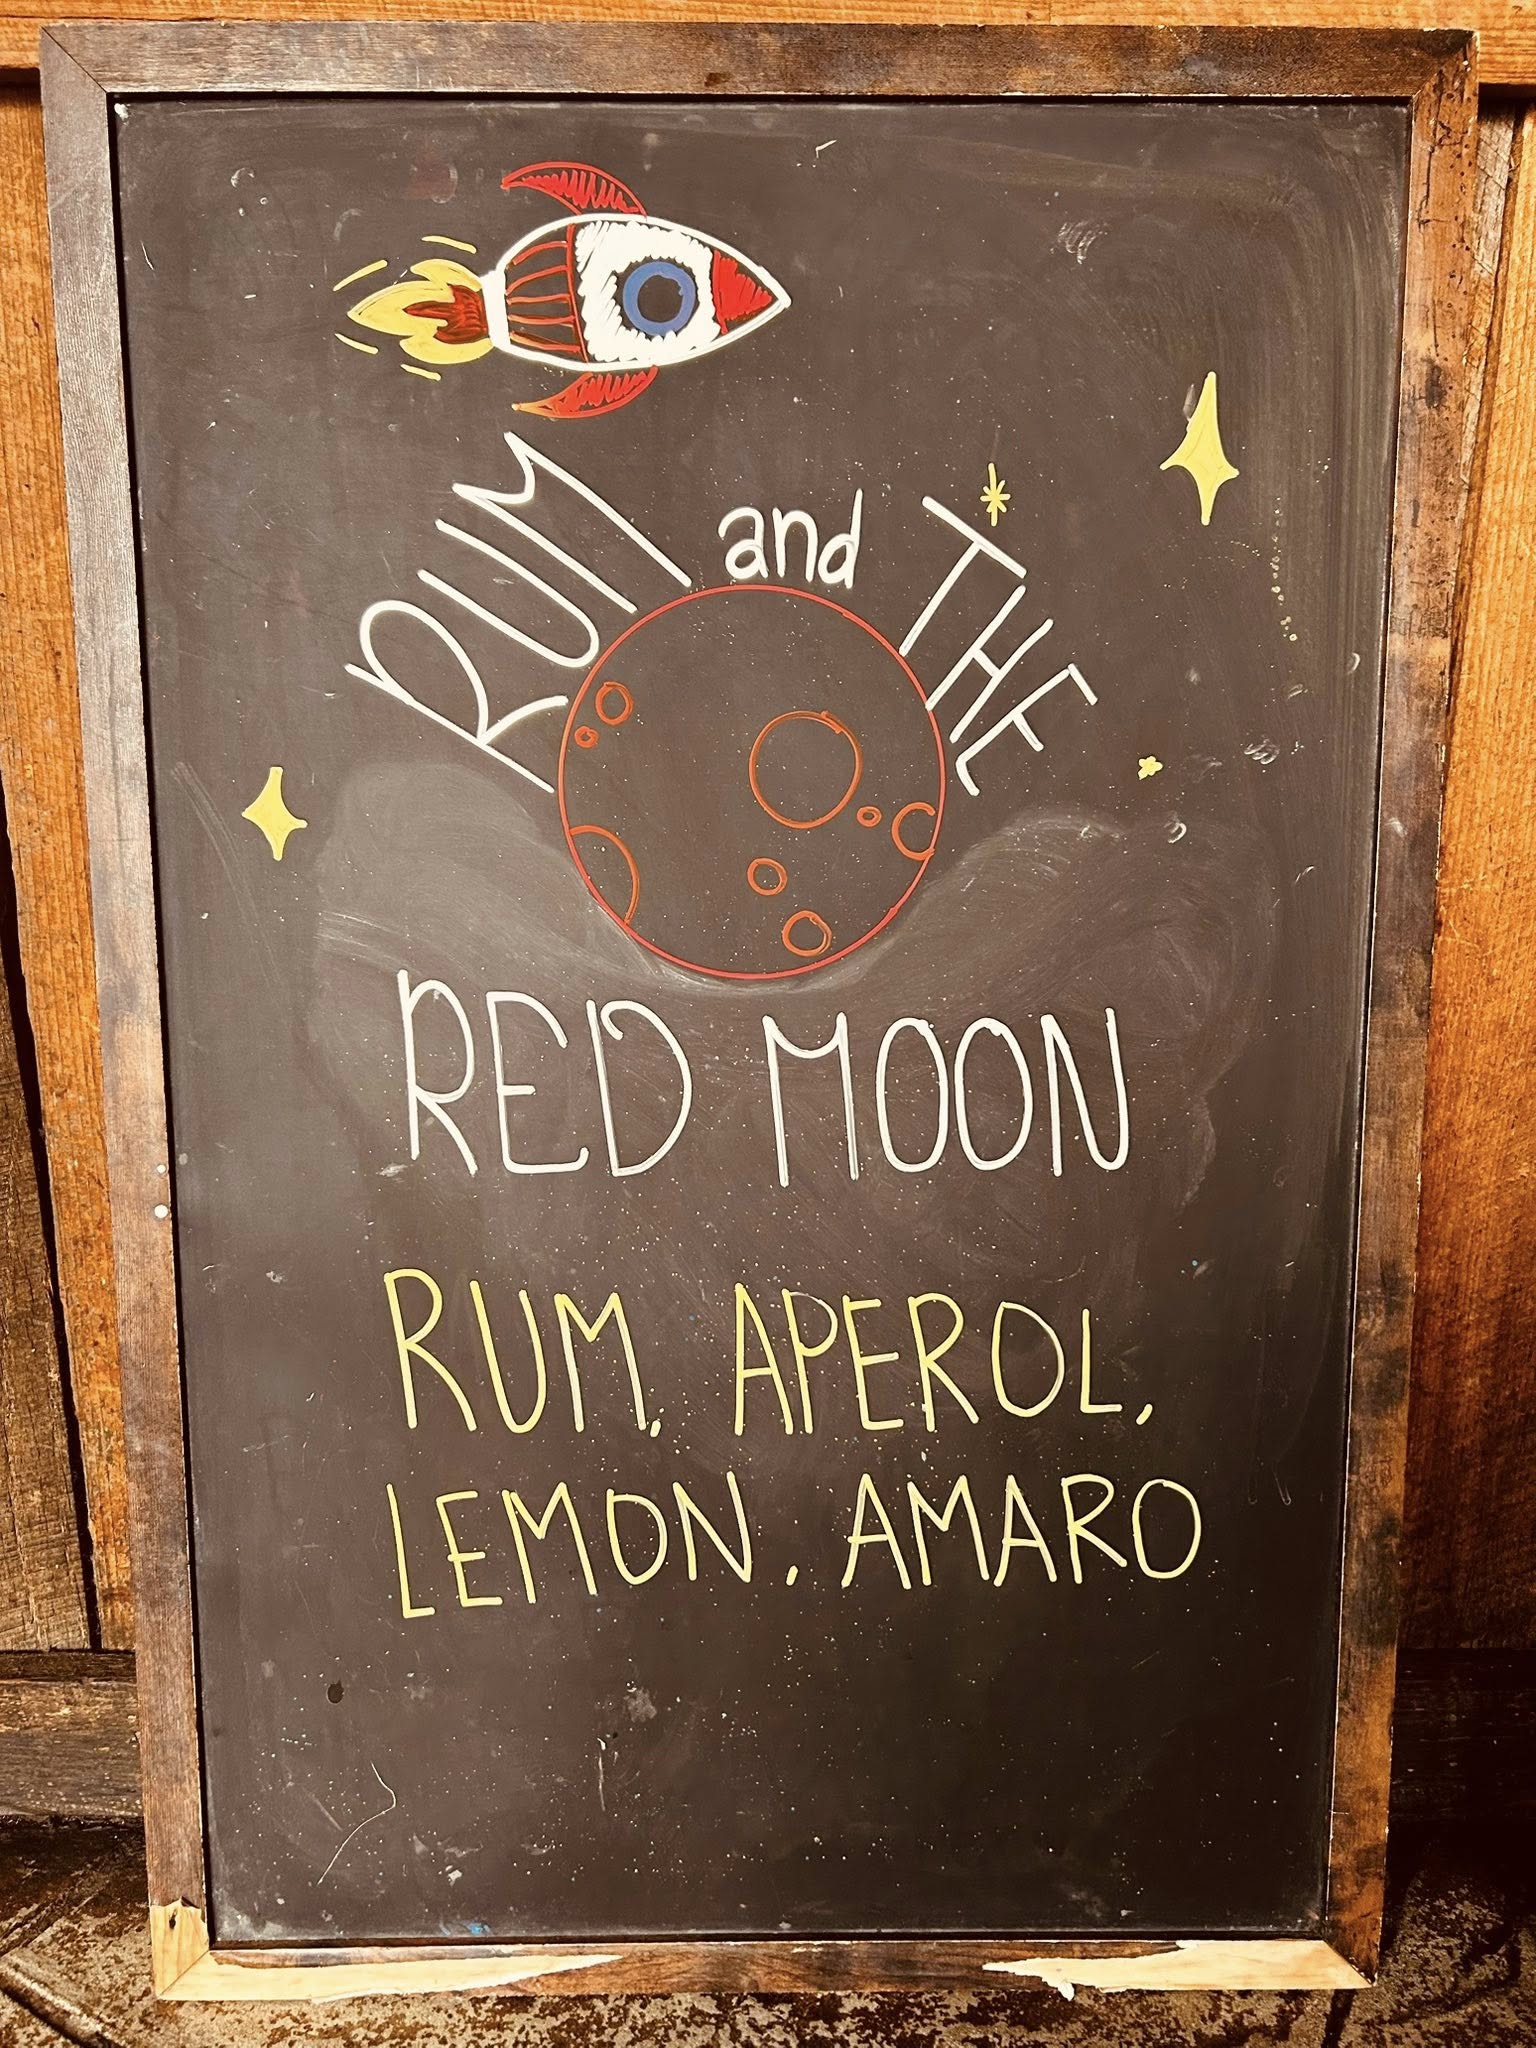 RUM and THE
RED MOON
RUM, APEROL,
LEMON, AMARO